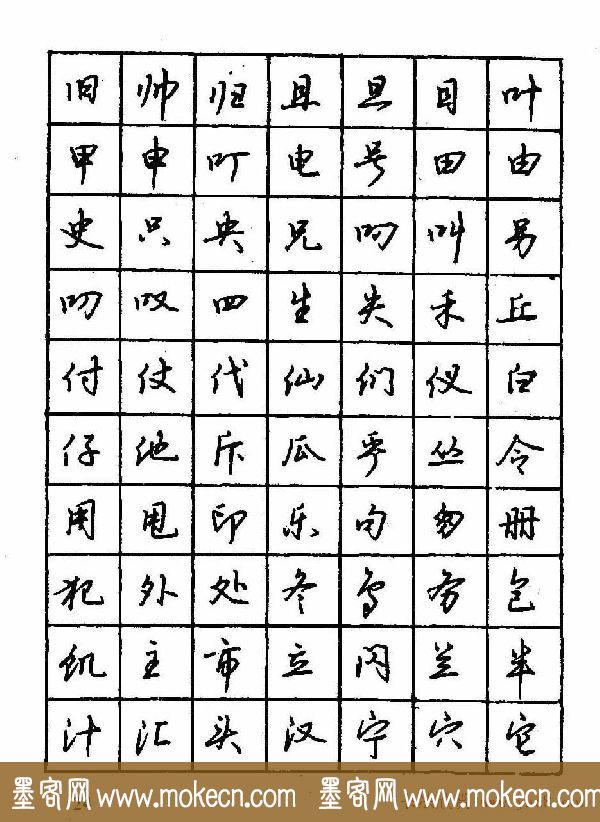 旧帅归且旦目叶
甲申叮电号田由
史只央兄叼叫另
叨叹四生失禾丘
付仗代仙们仪白
仔他斥瓜乎丛令
用甩印乐句匆册
犯外处冬鸟务包
饥主市立闪兰半
汁汇头汉宁穴它
墨客网 www.mokecn.com 墨客网 www.mokecn.com